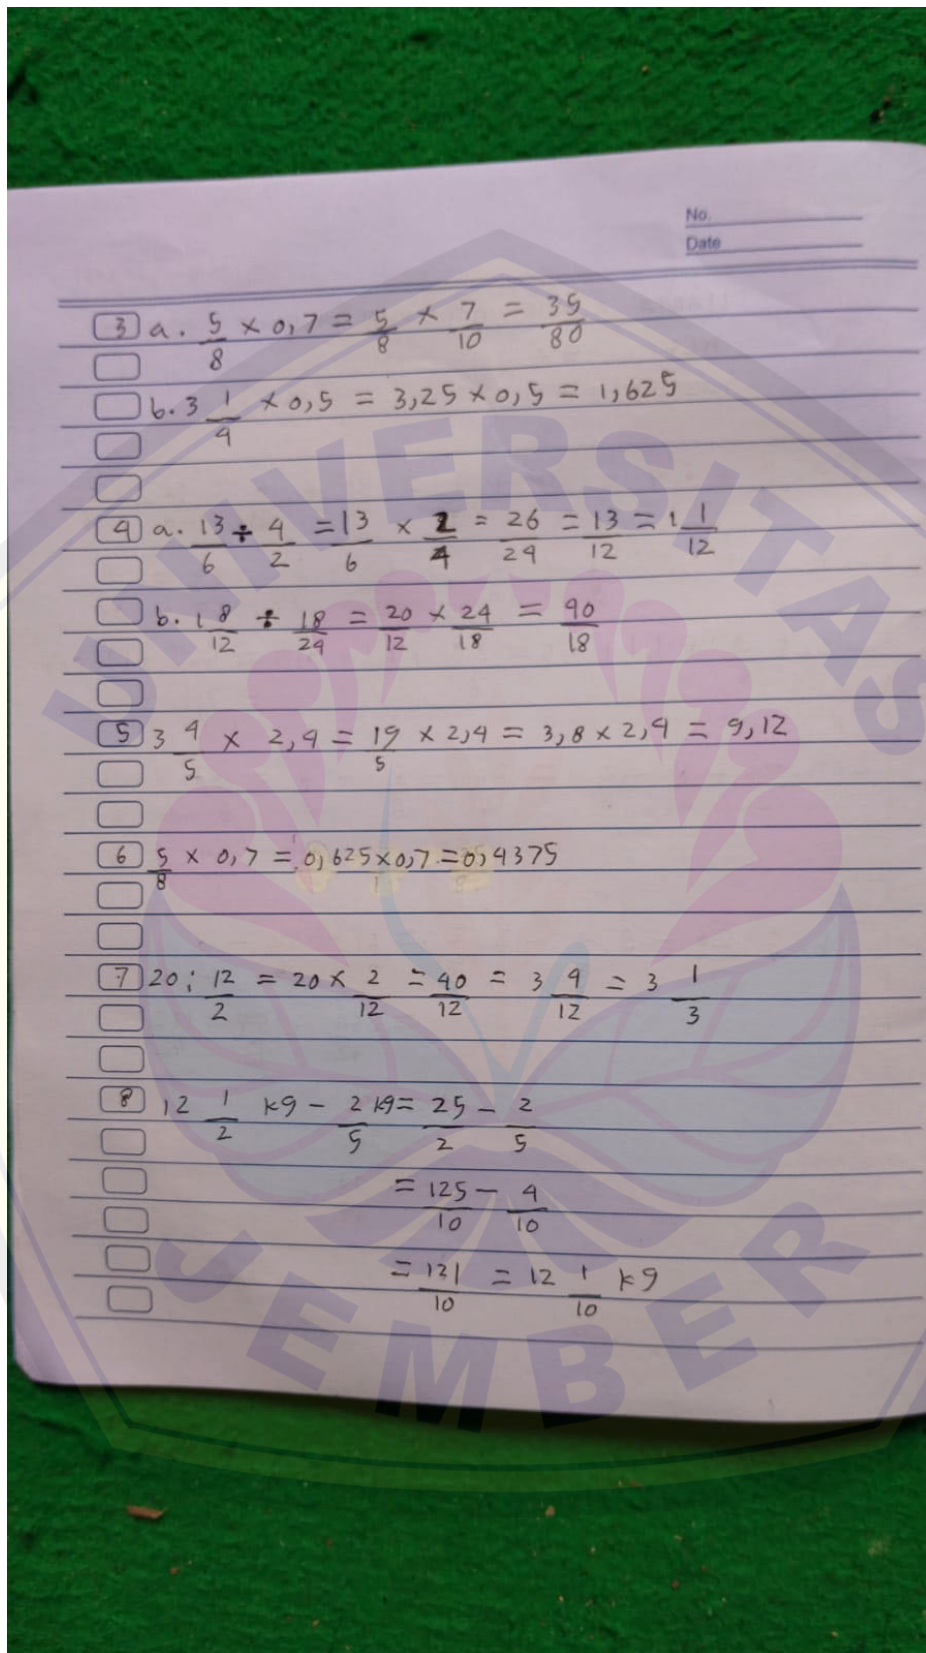 No.
Date
3 a. 5/8 × 0,7 = 5/8 × 7/10 = 35/80
b. 3 1/4 × 0,5 = 3,25 × 0,5 = 1,625
4 a. 13/6 ÷ 4/2 = 13/6 × 2/4 = 26/24 = 13/12 = 1 1/12
b. 1 8/12 ÷ 18/24 = 20/12 × 24/18 = 40/18
5 3 4/5 × 2,4 = 19/5 × 2,4 = 3,8 × 2,4 = 9,12
6 5/8 × 0,7 = 0,625 × 0,7 = 0,4375
7 20 : 12/2 = 20 × 2/12 = 40/12 = 3 4/12 = 3 1/3
8 12 1/2 kg - 2/5 kg = 25/2 - 2/5
= 125/10 - 4/10
= 121/10 = 12 1/10 kg
UNIVERSITAS
JEMBER